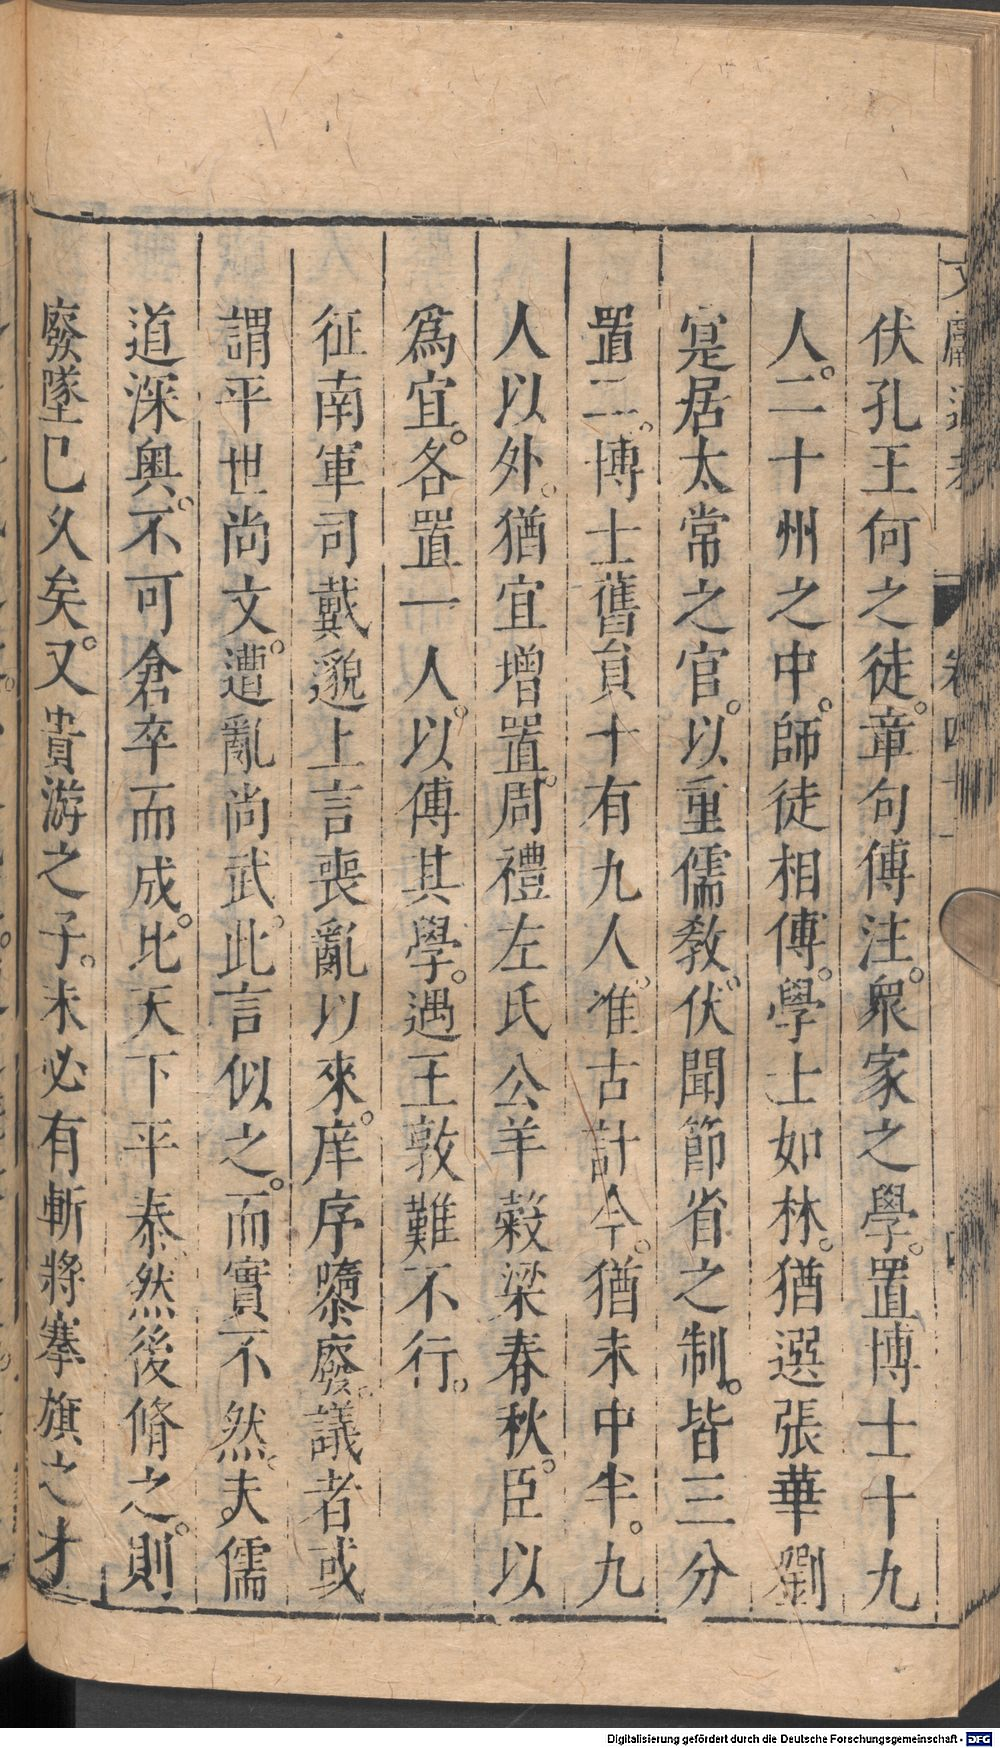 伏孔王何之徒。章句傅注。衆家之學。置博士十九
人。二十州之中。師徒相傅。學士如林。猶選張華劉
寔居太常之官。以重儒敎。伏聞節省之制。皆三分
置二。博士舊員十有九人。准古計今。猶未中半。九
人以外。猶宜增置。周禮左氏公羊穀梁春秋。臣以
爲宜。各置一人。以傅其學。遇王敦難不行。
征南軍司戴邈上言喪亂以來。庠序隳廢。議者或
謂平世尚文。遭亂尚武。此言似之。而實不然。夫儒
道深奥。不可倉卒而成。比天下平泰。然後脩之。則
廢墜已久矣。又貴游之子。未必有斬將搴旗之才
文獻通考 卷四十一 四
Digitalisierung gefördert durch die Deutsche Forschungsgemeinschaft - DFG